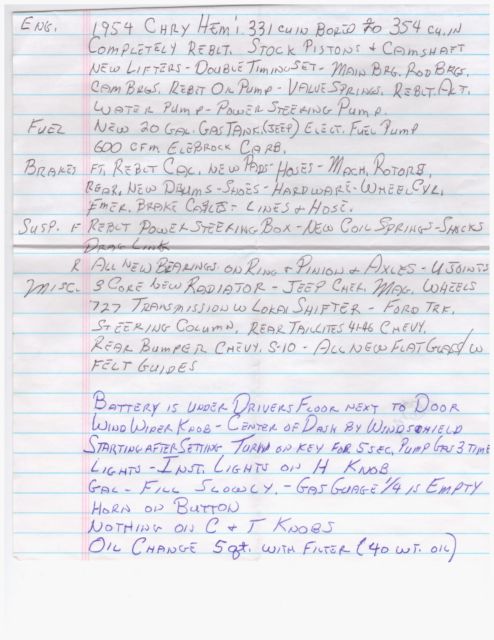 ENG. 1954 CHRY HEMI. 331 CU IN BORED TO 354 CU.IN
COMPLETELY REBLT. STOCK PISTONS & CAMSHAFT
NEW LIFTERS - DOUBLE TIMING SET - MAIN BRG. ROD BRGS.
CAM BRGS. REBLT OIL PUMP - VALVE SPRINGS. REBLT. ALT.
WATER PUMP - POWER STEERING PUMP.
FUEL NEW 20 GAL. GAS TANK (JEEP) ELECT. FUEL PUMP
600 CFM ELEBROCK CARB.
BRAKES FT. REBLT CAL. NEW PADS - HOSES - MACH. ROTORS,
REAR, NEW DRUMS - SHOES - HARDWARE - WHEEL CYL.
EMER. BRAKE CABLES - LINES & HOSE.
SUSP. F REBLT POWER STEERING BOX - NEW COIL SPRINGS - SHOCKS
DRAG LINK
R ALL NEW BEARINGS ON RING & PINION & AXLES - U JOINTS
MISC. 3 CORE NEW RADIATOR - JEEP CHER. MAG. WHEELS
727 TRANSMISSION W LOKAR SHIFTER - FORD TRK.
STEERING COLUMN, REAR TAILLITES 41-46 CHEVY.
REAR BUMPER CHEVY. S-10 - ALL NEW FLAT GLASS W
FELT GUIDES
BATTERY IS UNDER DRIVERS FLOOR NEXT TO DOOR
WIND WIPER KNOB - CENTER OF DASH BY WINDSHIELD
STARTING AFTER SETTING TURN ON KEY FOR 5 SEC, PUMP GAS 3 TIME
LIGHTS - INST. LIGHTS ON H KNOB
GAL - FILL SLOWLY. - GAS GUAGE 1/4 IS EMPTY
HORN ON BUTTON
NOTHING ON C & T KNOBS
OIL CHANGE 5 qt. WITH FILTER (40 WT. OIL)